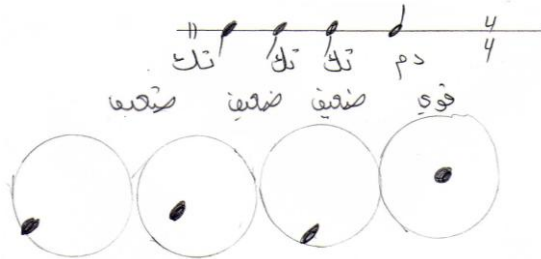 4
4
دم تك تك تك
قوي ضعيف ضعيف ضعيف